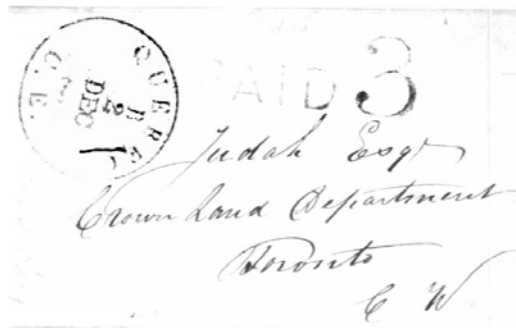 QUEBEC
C.E.
DEC
2
PAID 3
Judah Esqr
Crown Land Department
Toronto
C W